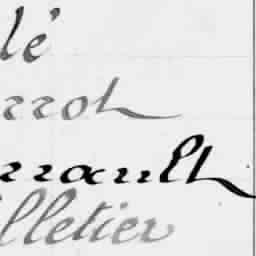 lé
rrot
rrault
lletier